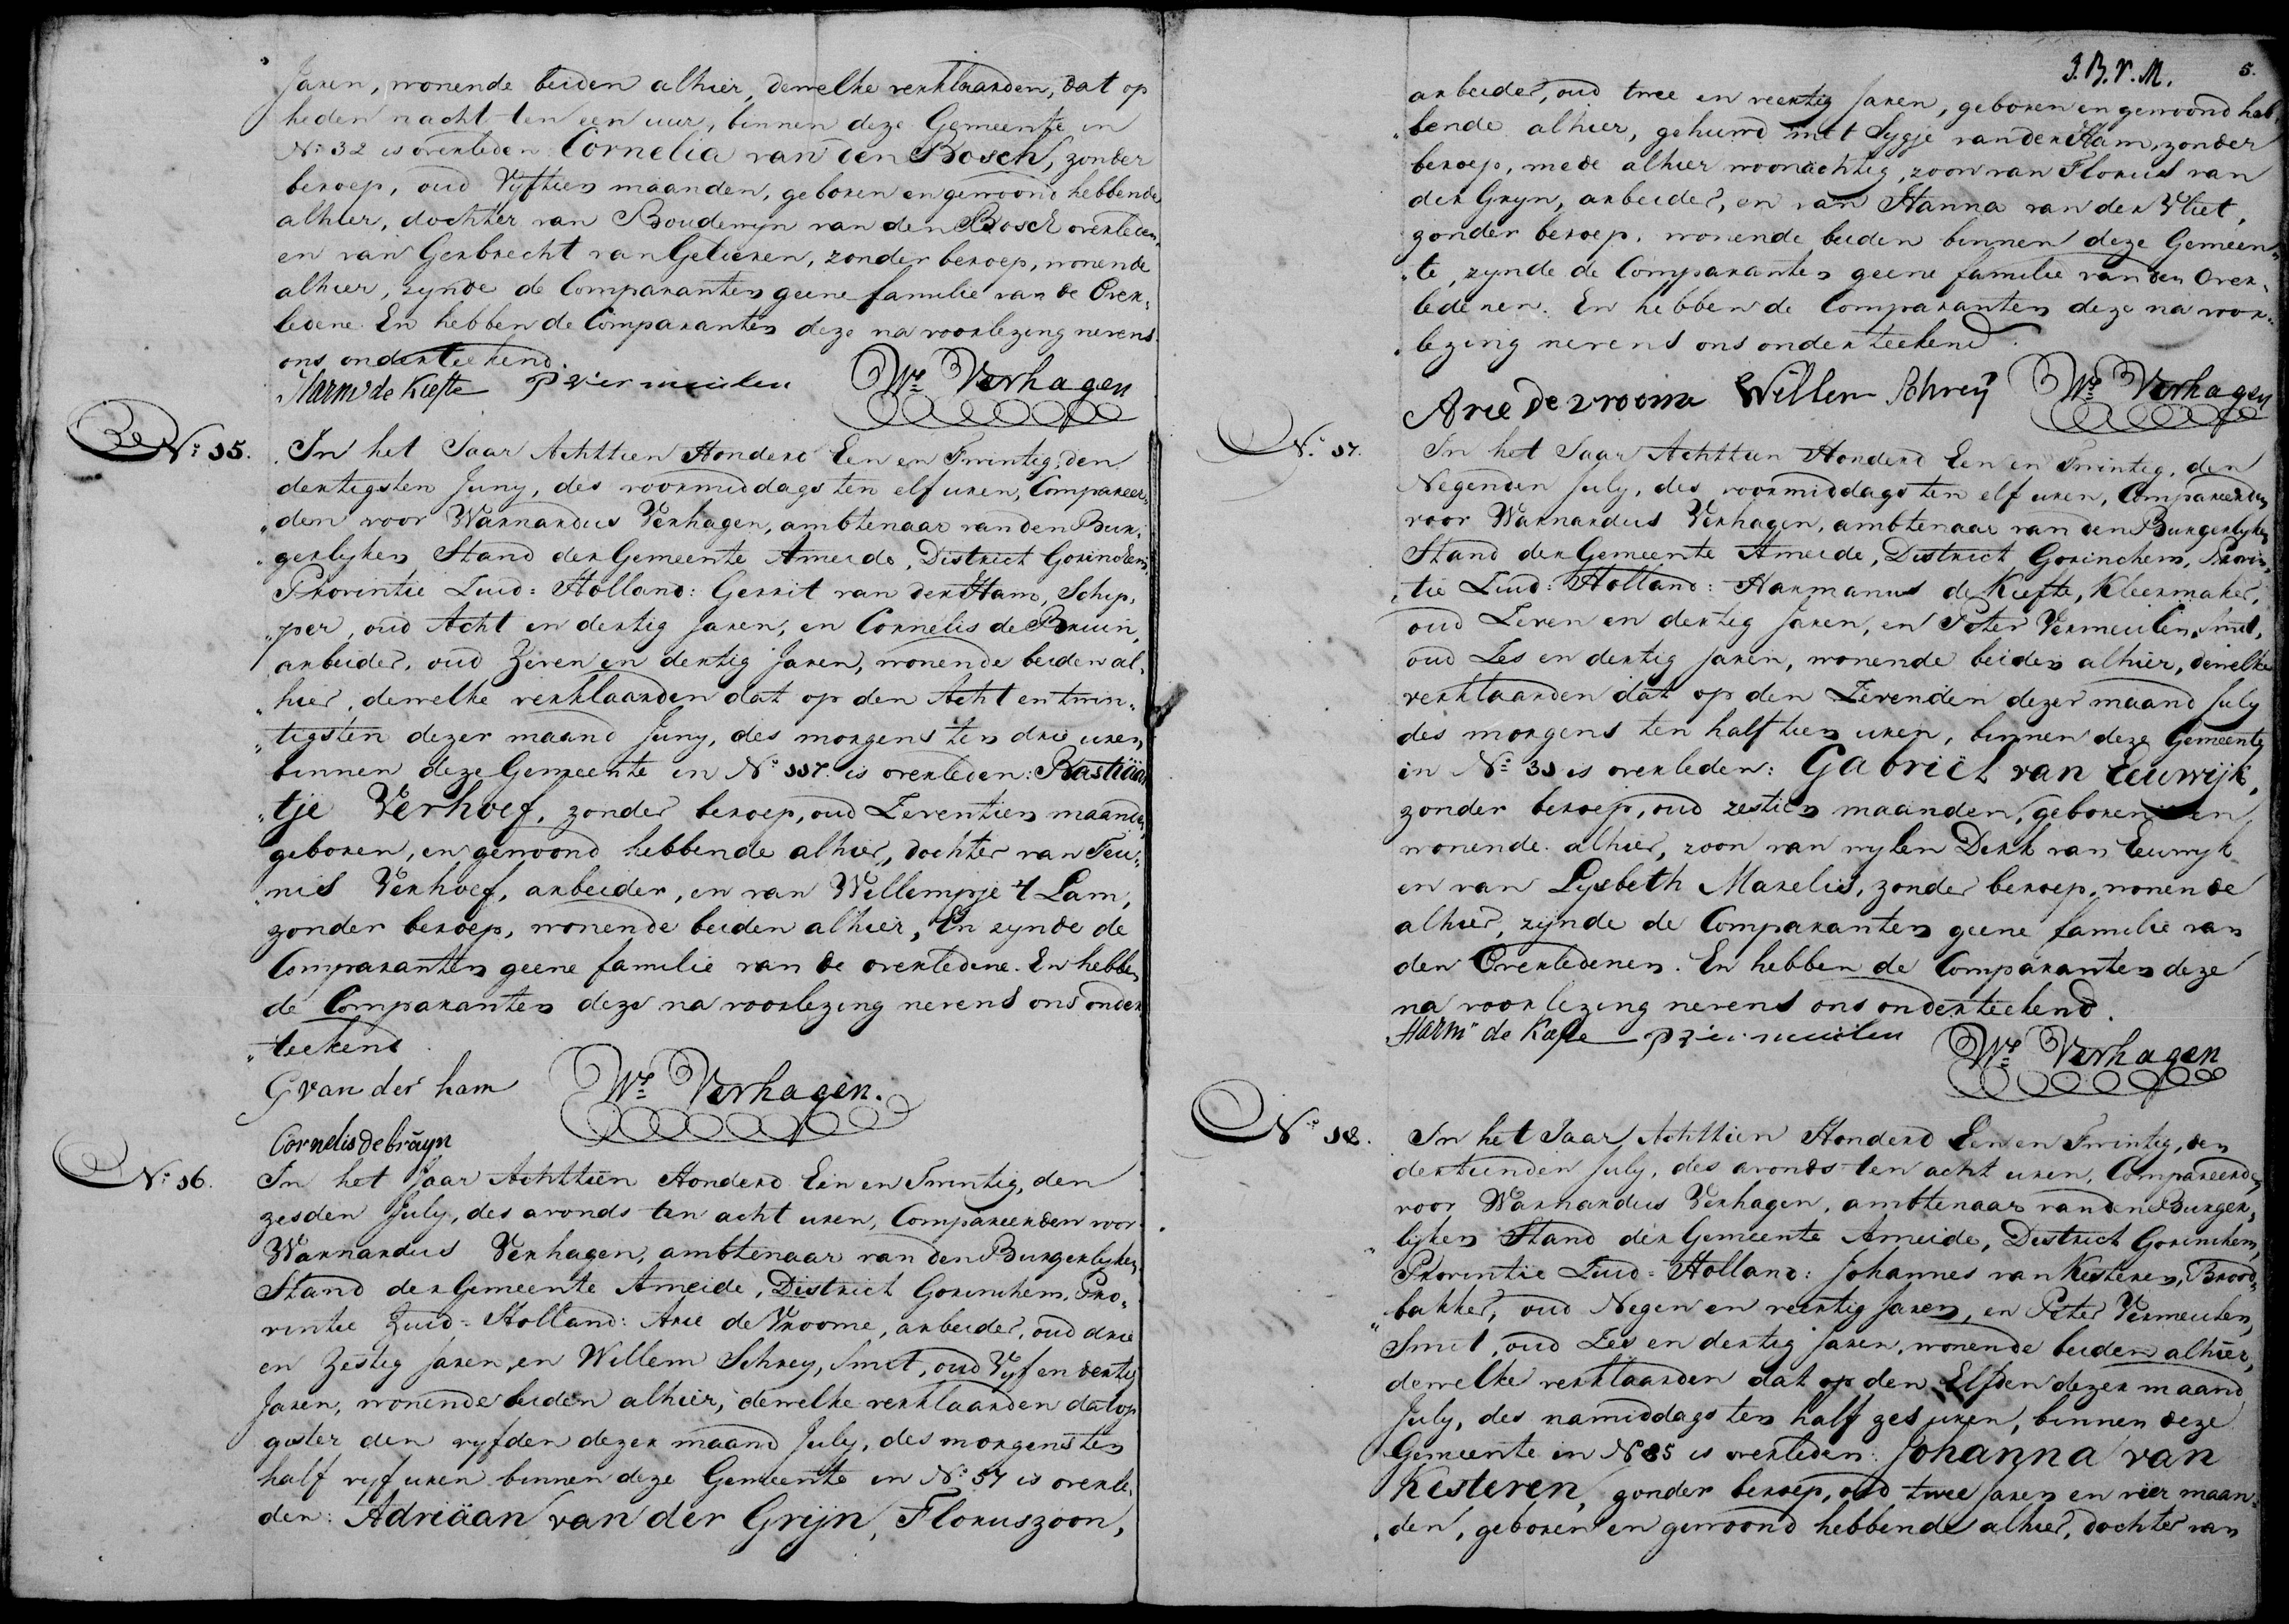 Jaren, wonende beiden alhier, dewelke verklaarden, dat op
heden nacht ten een uur, binnen deze Gemeente in
N:o 32 is overleden: Cornelia van den Bosch, zonder
beroep, oud Vyftien maanden, geboren en gewoond hebbende
alhier, dochter van Boudewyn van den Bosch overleden,
en van Gerbrecht van Gelieren, zonder beroep, wonende
alhier, zynde de Comparanten geene familie van de Over„
ledene. En hebben de Comparanten deze na voorlezing nevens
ons onderteekend.
Harms de Kiefte P Vermeulen Ws Verhagen
N:o 15.
In het Jaar Achttien Honderd Een en Twintig, den
dertigsten Juny, des voormiddags ten elf uren, Compareer„
„den voor Warnardus Verhagen, ambtenaar van den Bur„
„gerlyken Stand der Gemeente Ameide, District Gorinchem,
Provintie Zuid=Holland: Gerrit van der Ham, Schip„
„per, oud Acht en dertig jaren, en Cornelis de Bruin,
arbeider, oud Zeven en dertig jaren, wonende beiden al„
„hier, dewelke verklaarden dat op den Acht en twin„
„tigsten dezer maand Juny, des morgens ten drie uren,
binnen deze Gemeente in N:o 117. is overleden: Bastiäan
„tje Verhoef, zonder beroep, oud Zeventien maanden,
geboren, en gewoond hebbende alhier, dochter van Teu„
„nis Verhoef, arbeider, en van Willempje 't Lam,
zonder beroep, wonende beiden alhier, En zynde de
Comparanten geene familie van de overledene. En hebben
de Comparanten deze na voorlezing nevens ons onder
„teekend.
G van der ham Ws Verhagen.
Cornelis de bruyn
N:o 16.
In het Jaar Achttien Honderd Een en Twintig, den
zesden July, des avonds ten acht uren, Compareerden voor
Warnardus Verhagen, ambtenaar van den Burgerlyken
Stand der Gemeente Ameide, District Gorinchem, Pro„
vintie Zuid=Holland: Arie de Vroome, arbeider, oud drie
en Zestig jaren, en Willem Schrey, Smit, oud Vyf en dertig
Jaren, wonende beiden alhier, dewelke verklaarden dat op
gister den vyfden dezer maand July, des morgens ten
half vyf uren binnen deze Gemeente in N:o 57 is overle„
den: Adriäan van der Grijn, Floruszoon,
J.B.V.M. 5.
arbeider, oud twee en veertig jaren, geboren en gewoond heb„
„bende alhier, gehuwd met Sygje van der Ham, zonder
beroep, mede alhier woonachtig, zoon van Florus van
der Gryn, arbeider, en van Hanna van der Vliet,
zonder beroep, wonende beiden binnen deze Gemeen„
„te, zynde de Comparanten geene familie van den Over„
ledenen. En hebben de Comparanten deze na voor„
„lezing nevens ons onderteekend.
Arie de vroome Willem Schreij Ws Verhagen
N:o 17.
In het Jaar Achttien Honderd Een en Twintig, den
Negenden July, des voormiddags ten elf uren, Compareerden
voor Warnardus Verhagen, ambtenaar van den Burgerlyken
Stand der Gemeente Ameide, District Gorinchem, Provin„
„tie Zuid=Holland: Harmanus de Kiefte, Kleermaker,
oud Zeven en dertig jaren, en Peter Vermeulen, Smit,
oud Zes en dertig jaren, wonende beiden alhier, dewelke
verklaarden dat op den Zevenden dezer maand July
des morgens ten half tien uren, binnen deze Gemeente
in N:o 31 is overleden: Gabriël van Eeuwijk,
zonder beroep, oud zestien maanden, geboren en
wonende alhier, zoon van wylen Dirk van Eeuwyk
en van Lysbeth Marelis, zonder beroep, wonende
alhier, zijnde de Comparanten geene familie van
den Overledenen. En hebben de Comparanten deze
na voorlezing nevens ons onderteekend.
Harms de Kiefte P Vermeulen Ws Verhagen
N:o 18.
In het Jaar Achttien Honderd Een en Twintig, den
dertienden July, des avonds ten acht uren, Compareerden
voor Warnardus Verhagen, ambtenaar van den Burger„
„lyken Stand der Gemeente Ameide, District Gorinchem,
Provintie Zuid=Holland: Johannes van Kesteren, Brood„
„bakker, oud Negen en veertig jaren, en Peter Vermeulen,
Smit, oud Zes en dertig jaren, wonende beiden alhier,
dewelke verklaarden dat op den Elfden dezer maand
July, des namiddags ten half zes uren, binnen deze
Gemeente in N 85 is overleden: Johanna van
Kesteren, zonder beroep, oud twee jaren en vier maan„
„den, geboren en gewoond hebbende alhier, dochter van